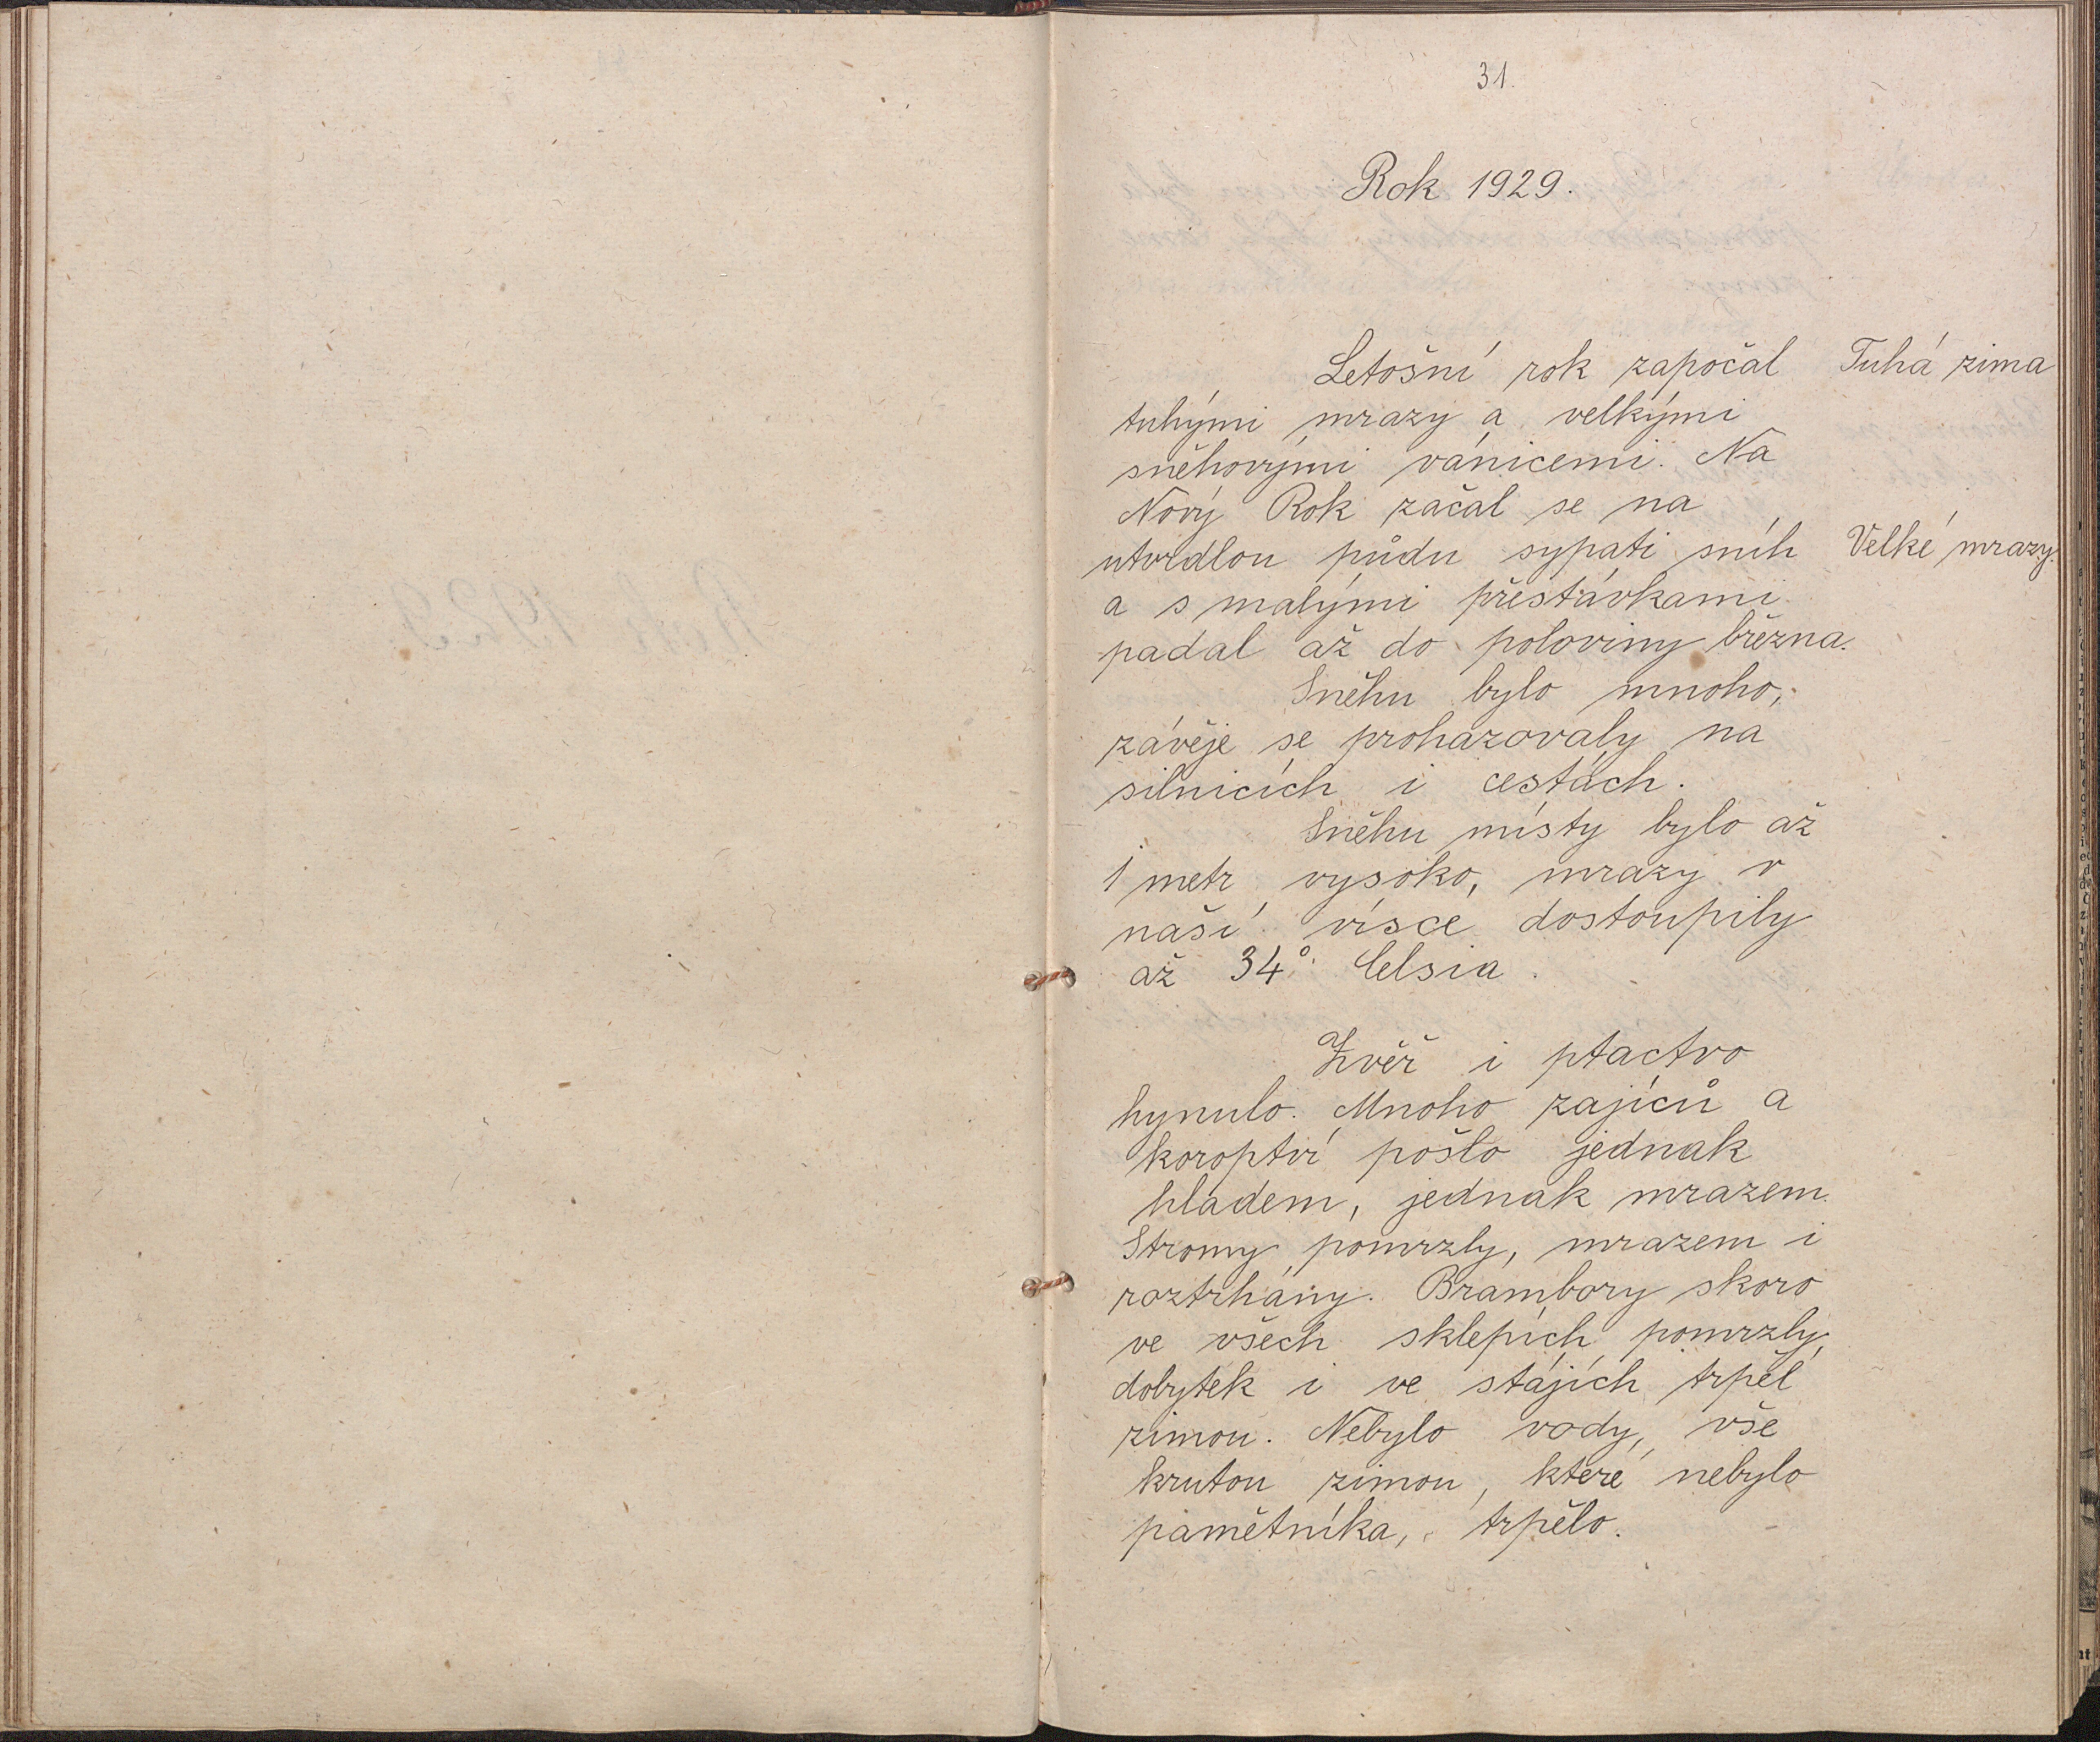 31.
Rok 1929.
Letošní rok započal
Tuhá zima
tuhými mrazy a velkými
sněhovými vánicemi. Na
Nový Rok začal se na
utvrdlou půdu sypati sníh
Velké mrazy.
a s malými přestávkami
padal až do poloviny března.
Sněhu bylo mnoho,
závěje se prohazovaly na
silnicích i cestách.
Sněhu místy bylo až
1 metr vysoko, mrazy v
naší vísce dostoupily
až 34° Celsia.
Zvěř i ptactvo
hynulo. Mnoho zajíců a
koroptví pošlo jednak
hladem, jednak mrazem.
Stromy pomrzly, mrazem i
roztrhány. Brambory skoro
ve všech sklepích pomrzly,
dobytek i ve stájích trpěl
zimou. Nebylo vody, vše
krutou zimou, které nebylo
pamětníka, trpělo.